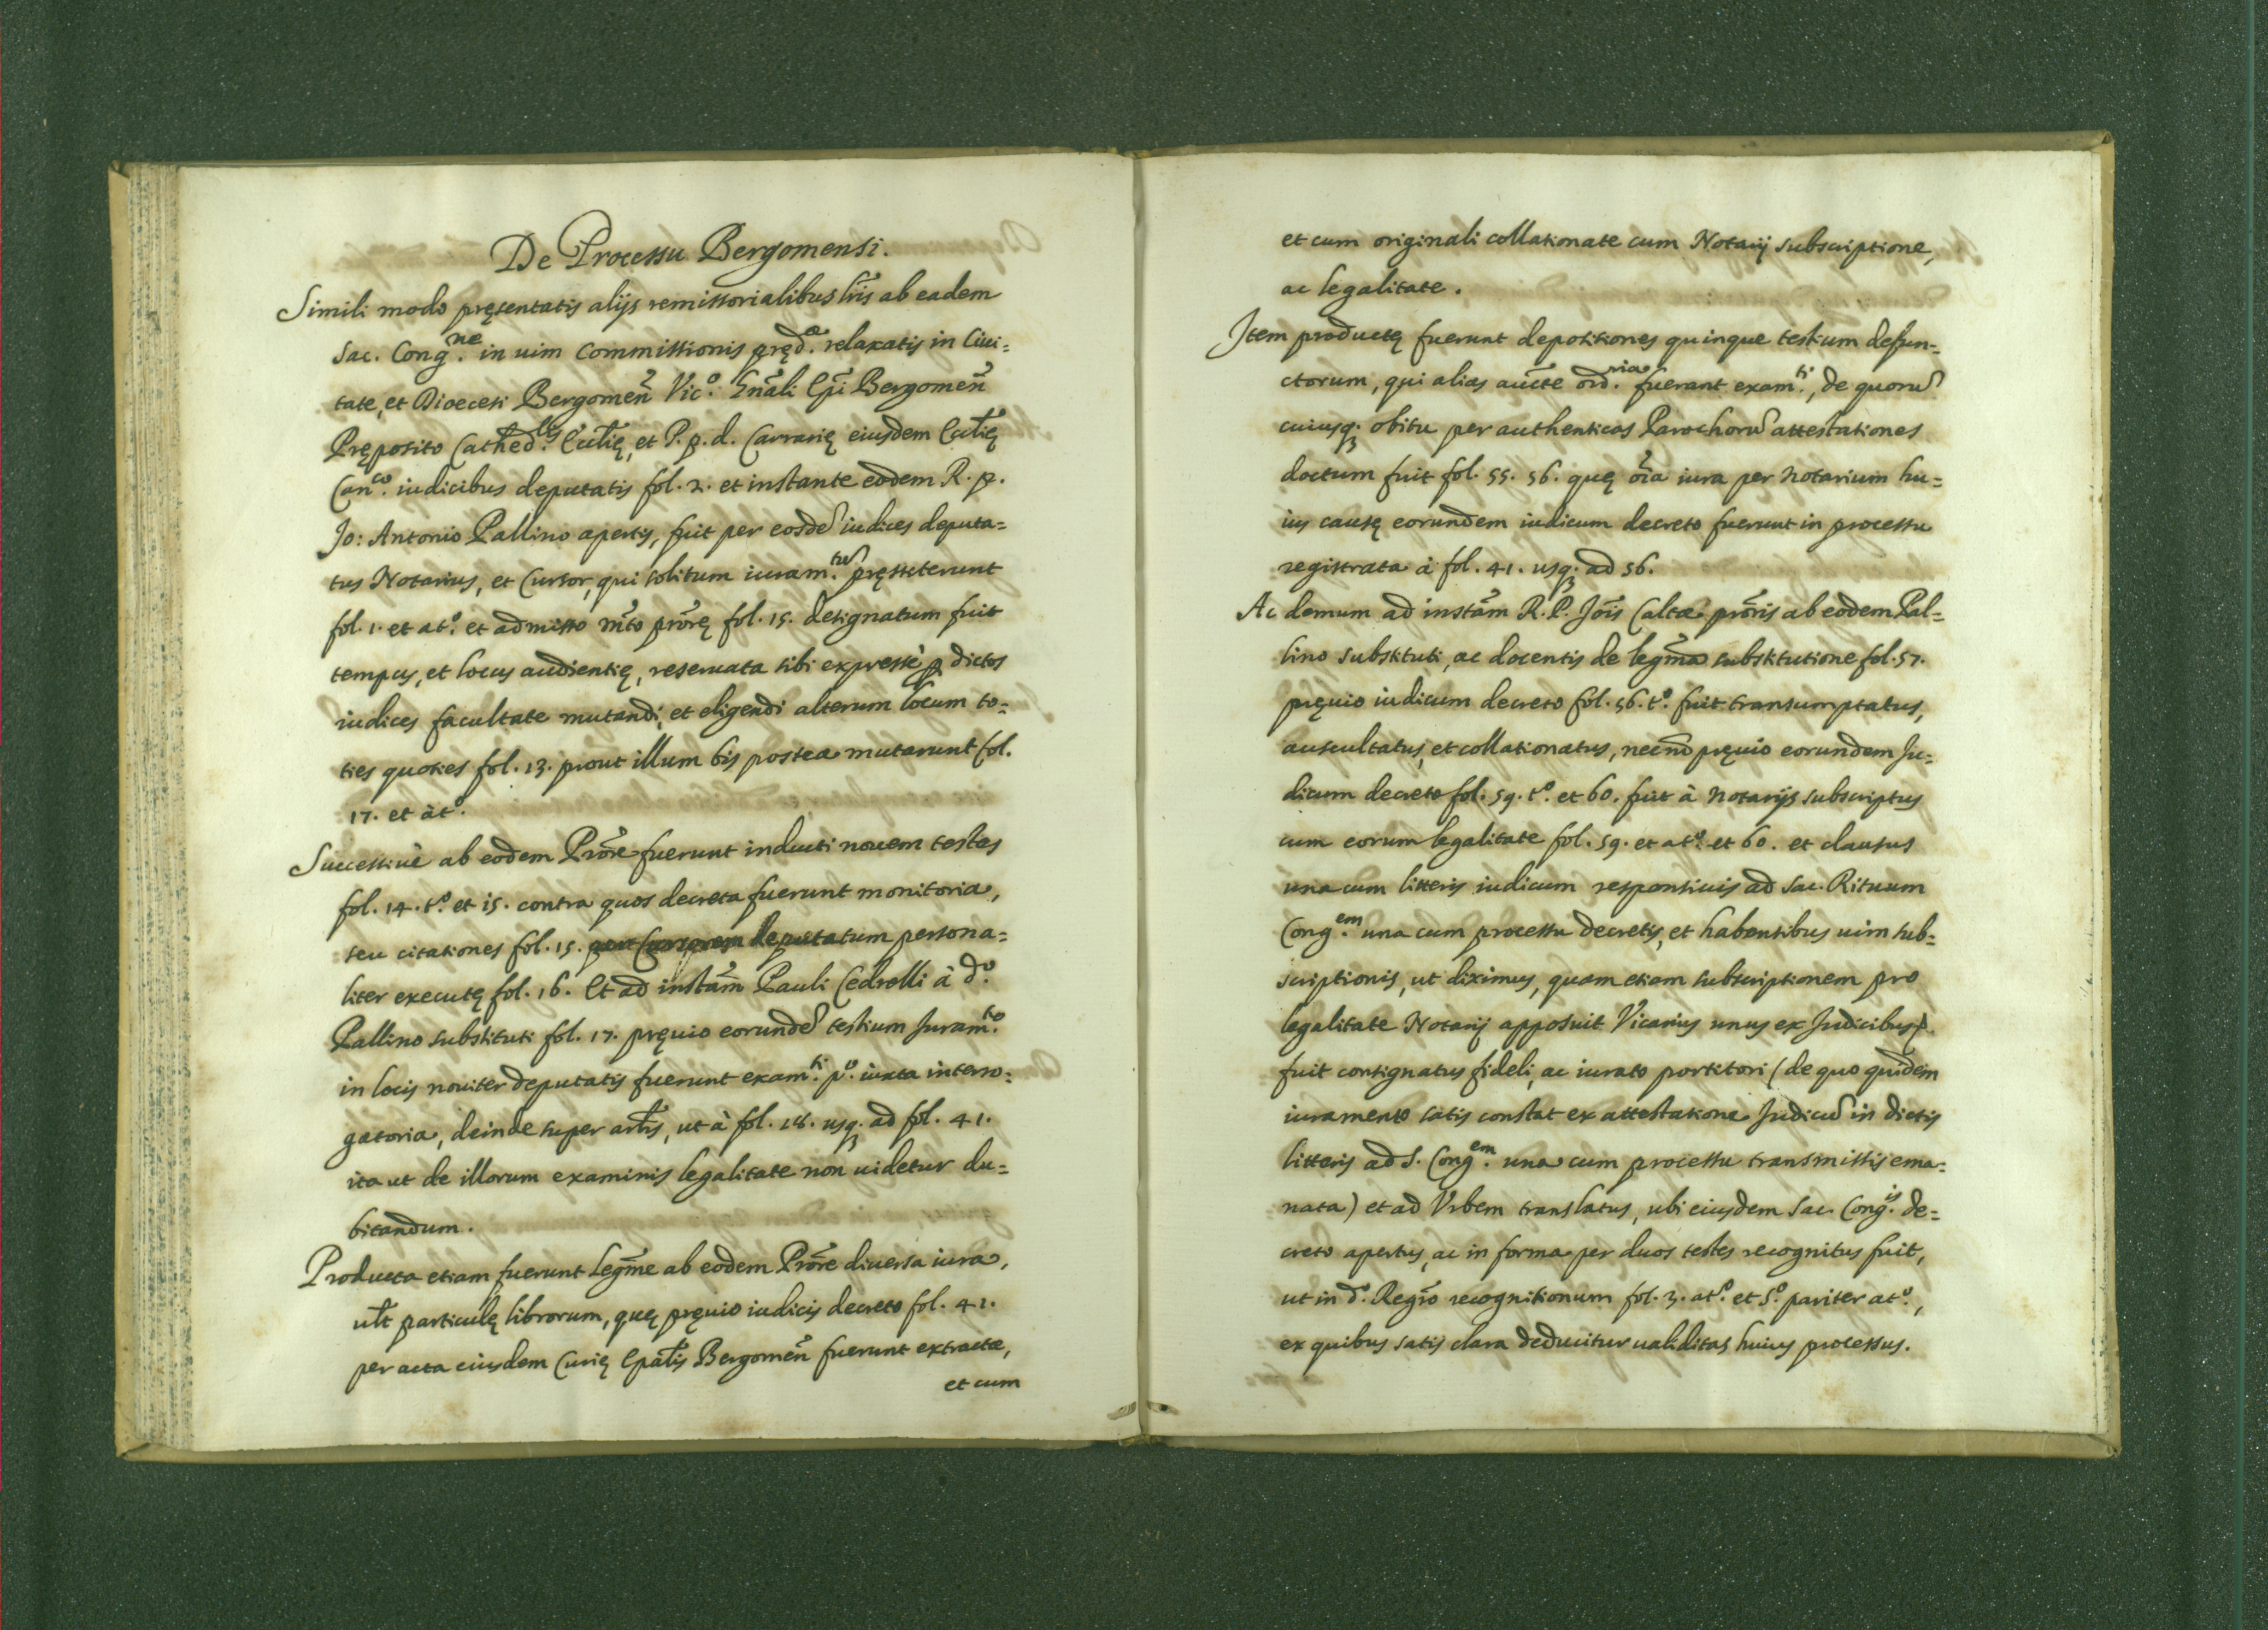 De Processu Bergomensi.
Simili modo pręsentatis alijs remissorialibus lr̃is ab eadem
Sac. Cong.ne in uim Commissionis pręd.æ relaxatis in Ciui=
tate, et Dioecesi Bergomeñ Vic.o Gñali Ep̃i Bergomeñ
Pręposito Cathed.lis Eccl̃ię, et P. p. d. Carrarię eiusdem Eccl̃ię
Can.co iudicibus deputatis fol. 2. et instante eodem R. p.
Jo: Antonio Pallino apertis, fuit per eosdẽ iudices deputa=
tus Notarius, et Cursor, qui solitum iuram.tũ pręstiterunt
fol. 1. et at.o et admisso m̃to prõrę fol. 15. designatum fuit
tempus, et locus audientię, reseruata sibi expressè ꝑ dictos
iudices facultate mutandi, et eligendi alterum locum to=
ties quoties fol. 13. prout illum bis postea mutarunt fol.
17. et àt.o
Successiuè ab eodem Prõre fuerunt inducti nouem testes
fol. 14. t.o et 15. contra quos decreta fuerunt monitoria,
seu citationes fol. 15. per Cursorem deputatum persona=
liter executę fol. 16. Et ad instãm Pauli Cedrelli à d.o
Pallino substituti fol. 17. pręuio eorundẽ testium Juram.to
in locis nouiter deputatis fuerunt exam.ti p.o iuxta interro=
gatoria, deinde super artl̃is, ut à fol. 18. usq; ad fol. 41.
ita ut de illorum examinis legalitate non uidetur du=
bitandum.
Producta etiam fuerunt legm̃e ab eodem Prõre diuersa iura,
ul̃t particulę librorum, quę pręuio iudicis decreto fol. 41.
per acta eiusdem Curię Epal̃is Bergomeñ fuerunt extractæ,
et cum
et cum originali collationate cum Notarij subscriptione,
ac legalitate.
Item productę fuerunt depositiones quinque testium defun=
ctorum, qui alias auc̃te ord.ria fuerant exam.ti, de quorũ
cuiusq; obitu per authenticas Parochorũ attestationes
doctum fuit fol. 55. 56. quę oĩa iura per Notarium hu=
ius causę eorundem iudicum decreto fuerunt in processu
registrata à fol. 41. usq; ad 56.
Ac demum ad instãm R. P. Joĩs Caltæ prõris ab eodem Pal=
lino substituti, ac docentis de legm̃a substitutione fol. 57.
pręuio iudicum decreto fol. 56. t.o fuit transumptatus,
auscultatus, et collationatus, necnõ pręuio eorundem Ju=
dicum decreto fol. 59. t.o et 60. fuit à Notarijs subscriptus
cum eorum legalitate fol. 59. et at.o et 60. et clausus
una cum litteris iudicum responsiuis ad Sac. Rituum
Cong.em una cum processu decretis, et habentibus uim sub=
scriptionis, ut diximus, quam etiam subscriptionem pro
legalitate Notarij apposuit Vicarius unus ex Judicibus,
fuit consignatus fideli, ac iurato portitori (de quo quidem
iuramento satis constat ex attestatione Judicũ in dictis
litteris ad S. Cong.em una cum processu transmissis ema=
nata) et ad Vrbem translatus, ubi eiusdem Sac. Cong.is de=
creto apertus, ac in forma per duos testes recognitus fuit,
ut in d.o Regr̃o recognitionum fol. 3. at.o et 5.o pariter at.o,
ex quibus satis clara deducitur ualiditas huius processus.